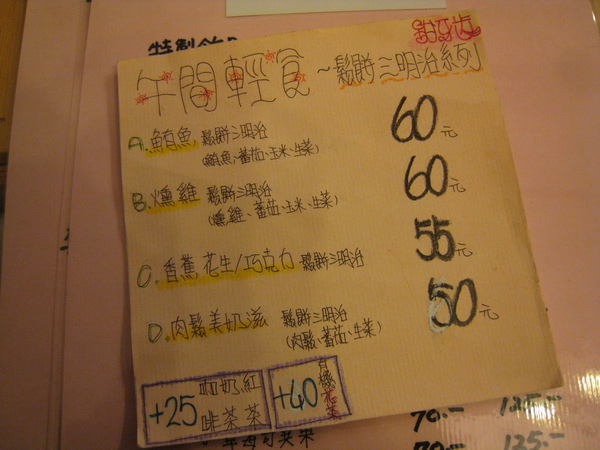 特製
甜牙齒
午間輕食~鬆餅三明治系列
A.鮪魚 鬆餅三明治 60元
(鮪魚、蕃茄、玉米、生菜)
B.燻雞 鬆餅三明治 60元
(燻雞、蕃茄、玉米、生菜)
C.香蕉花生/巧克力 鬆餅三明治 55元
D.肉鬆美奶滋 鬆餅三明治 50元
(肉鬆、蕃茄、生菜)
+25 咖啡 奶茶 紅茶
+40 有機花茶
70.- 125.-
70.- 125.-